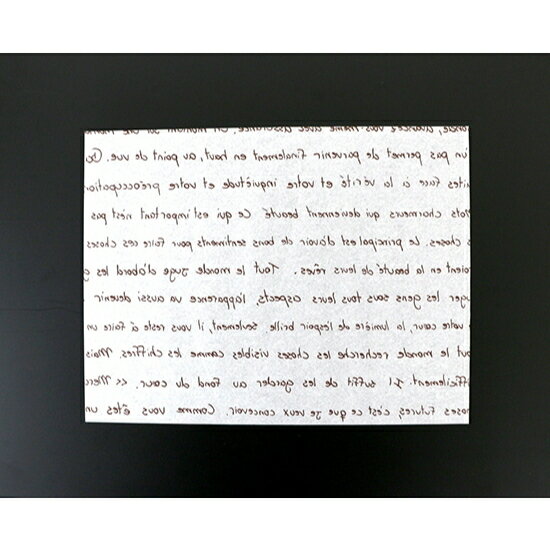 vous-même avec assurance. Un
un pas permet de parvenir finalement en haut, au point de vue. De
ites face à la vérité et votre inquiétude et votre préoccupation
mots charmeurs qui deviennent beauté Ce qui est important n'est pas
s choses. Le principal est d'avoir de bons sentiments pour faire ces choses
oient en la beauté de leurs rêves. Tout le monde juge d'abord les g
uger les gens sous tous leurs aspects, l'apparence va aussi devenir
votre cœur, la lumière de l'espoir brille, seulement, il vous reste à faire un
out le monde recherche les choses visibles comme les chiffres. Mais
ifficilement. Il suffit de les garder au fond du cœur. ce Merc
oses futures, c'est ce que je veux concevoir. Comme vous êtes un